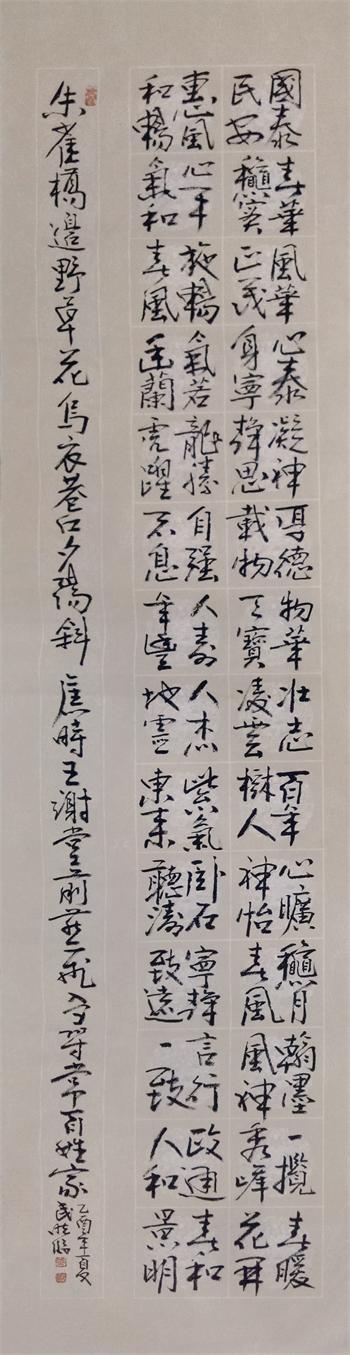 國泰民安
春華穐實
風華正茂
心泰身寧
凝神靜思
厚德載物
物華天寶
壮志凌雲
百年樹人
心曠神怡
穐月春風
翰墨風神
一攬秀峰
春暖花開
惠風和暢
心平氣和
施暢春風
氣若幽蘭
龍騰虎躍
自强不息
人壽年豐
人杰地靈
紫氣東来
卧石聽濤
寧靜致遠
言行一致
政通人和
春和景明
朱雀橋邊野草花烏衣巷口夕陽斜舊時王謝堂前燕飛入尋常百姓家
乙酉年夏